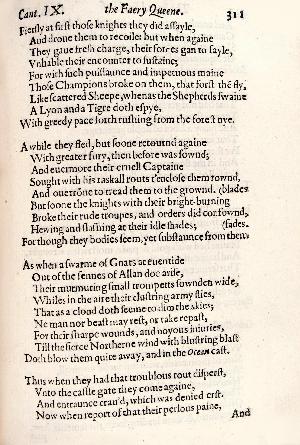 Cant. IX. the Faery Queene. 311
Fiersly at first those knights they did assayle,
And droue them to recoile: but when againe
They gaue fresh charge, their forces gan to fayle,
Vnhable their encounter to sustaine;
For with such puissaunce and impetuous maine
Those Champions broke on them, that forst the fly,
Like scattered Sheepe, whenas the Shepherds swaine
A Lyon and a Tigre doth espye,
With greedy pace forth rushing from the forest nye.
A while they fled, but soone retournd againe
With greater fury, then before was fownd;
And euermore their cruell Captaine
Sought with his raskall routs t'enclose them rownd,
And ouerrōne to tread them to the grownd. (blades
But soone the knights with their bright-burning
Broke their rude troupes, and orders did confownd,
Hewing and slashing at their idle shades; (fades.
For though they bodies seem, yet substaunce from them
As when a swarme of Gnats at euentide
Out of the fennes of Allan doe arise,
Their murmuring small trompetts sownden wide,
Whiles in the aire their clustring army flies,
That as a cloud doth seeme to dim the skies;
Ne man nor beast may rest, or take repast,
For their sharpe wounds, and noyous iniuries,
Till the fierce Northerne wind with blustring blast
Doth blow them quite away, and in the Ocean cast.
Thus when they had that troublous rout disperst,
Vnto the castle gate they come againe,
And entraunce crau'd, which was denied erst.
Now when report of that their perlous paine,
And